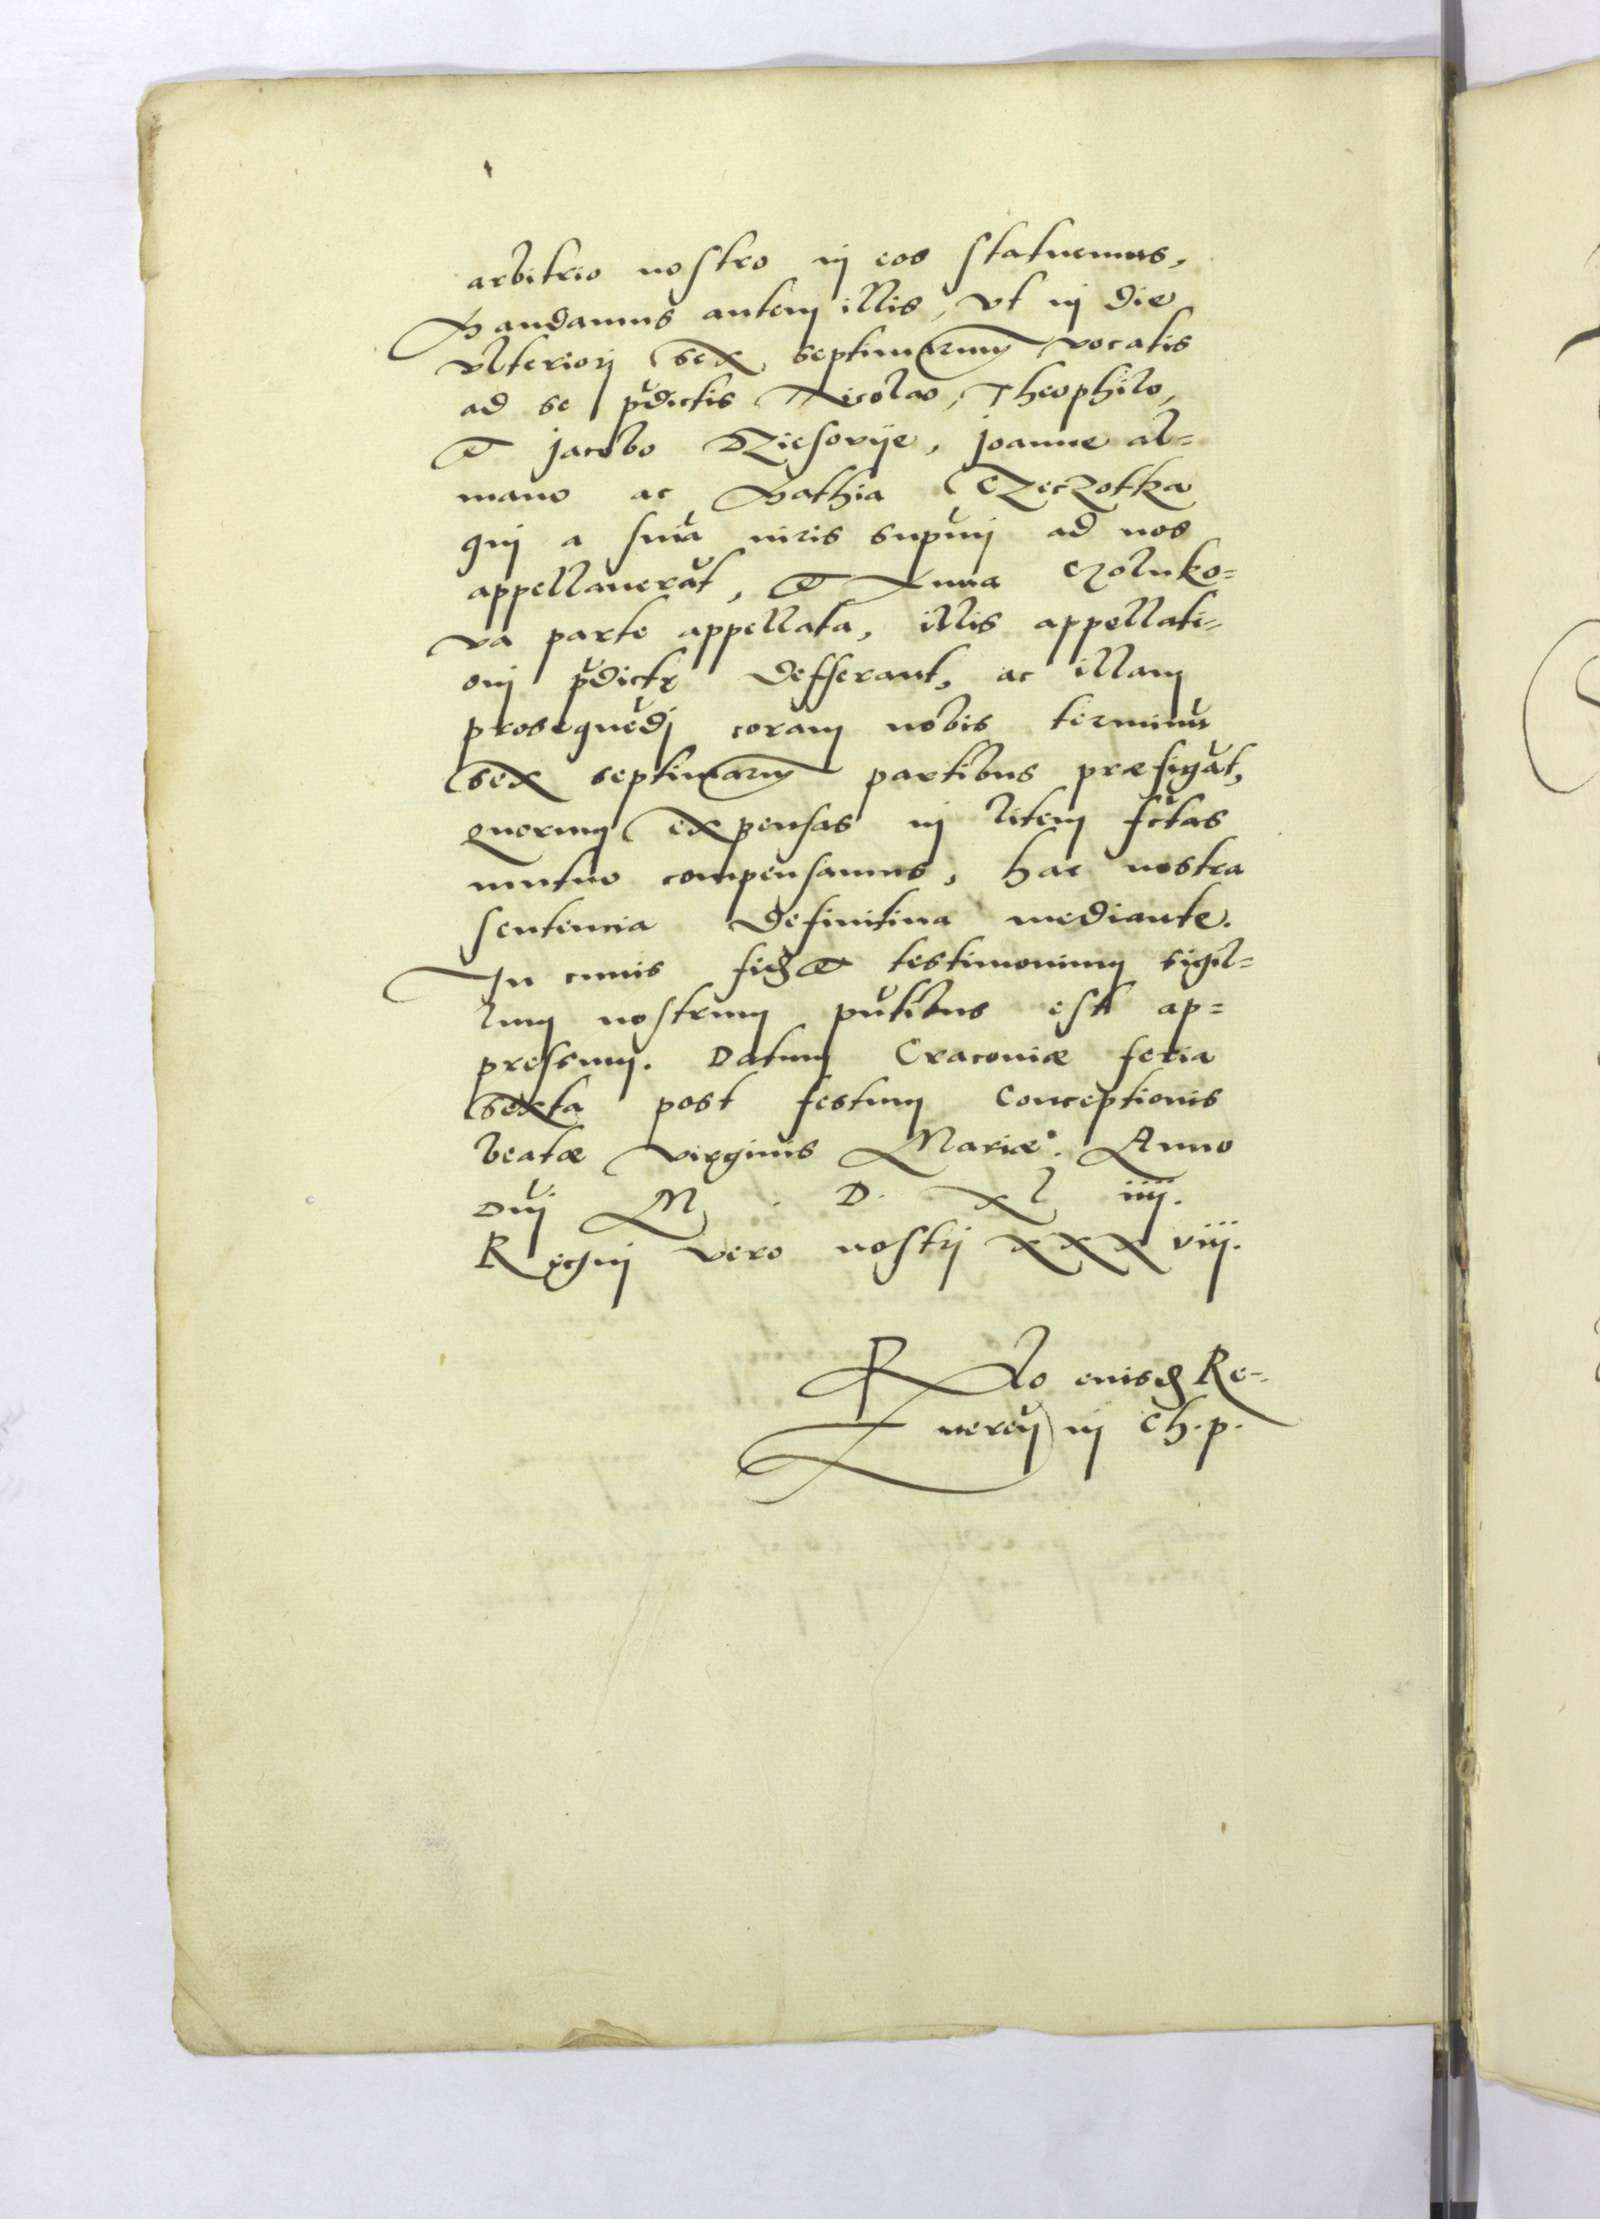 arbitrio nostro in eos statuemus,
Mandamus autem illis, vt in die
vlteriorj sex septimanarum vocatis
ad se pdictis Nicolao, Theophilo,
et Jacobo Dziesovÿe, Joanne al=
mano ac Mathia Czeczotka
qui a snia iuris supmi ad nos
appellauerat, et Anna Czoluko=
va parte appellata, illis appellati=
oni pdictę defferant, ac illam
prosequedj coram nobis terminu
sex septimanarum partibus præfigat,
quorum expensas in litem fctas
mutuo compensamus, hac nostra
sententia definitiua mediante.
In cuius fidem et testimonium sigil=
lum nostrum pntibus est ap=
pressum. Datum Cracoviæ feria
sexta post festum Conceptionis
beatæ virginis Mariæ. Anno
Dni M. D. xl iiij.
Regni vero nostrj xxxviij.
Rlo eiusdem Re=
uerendi in Ch. p.